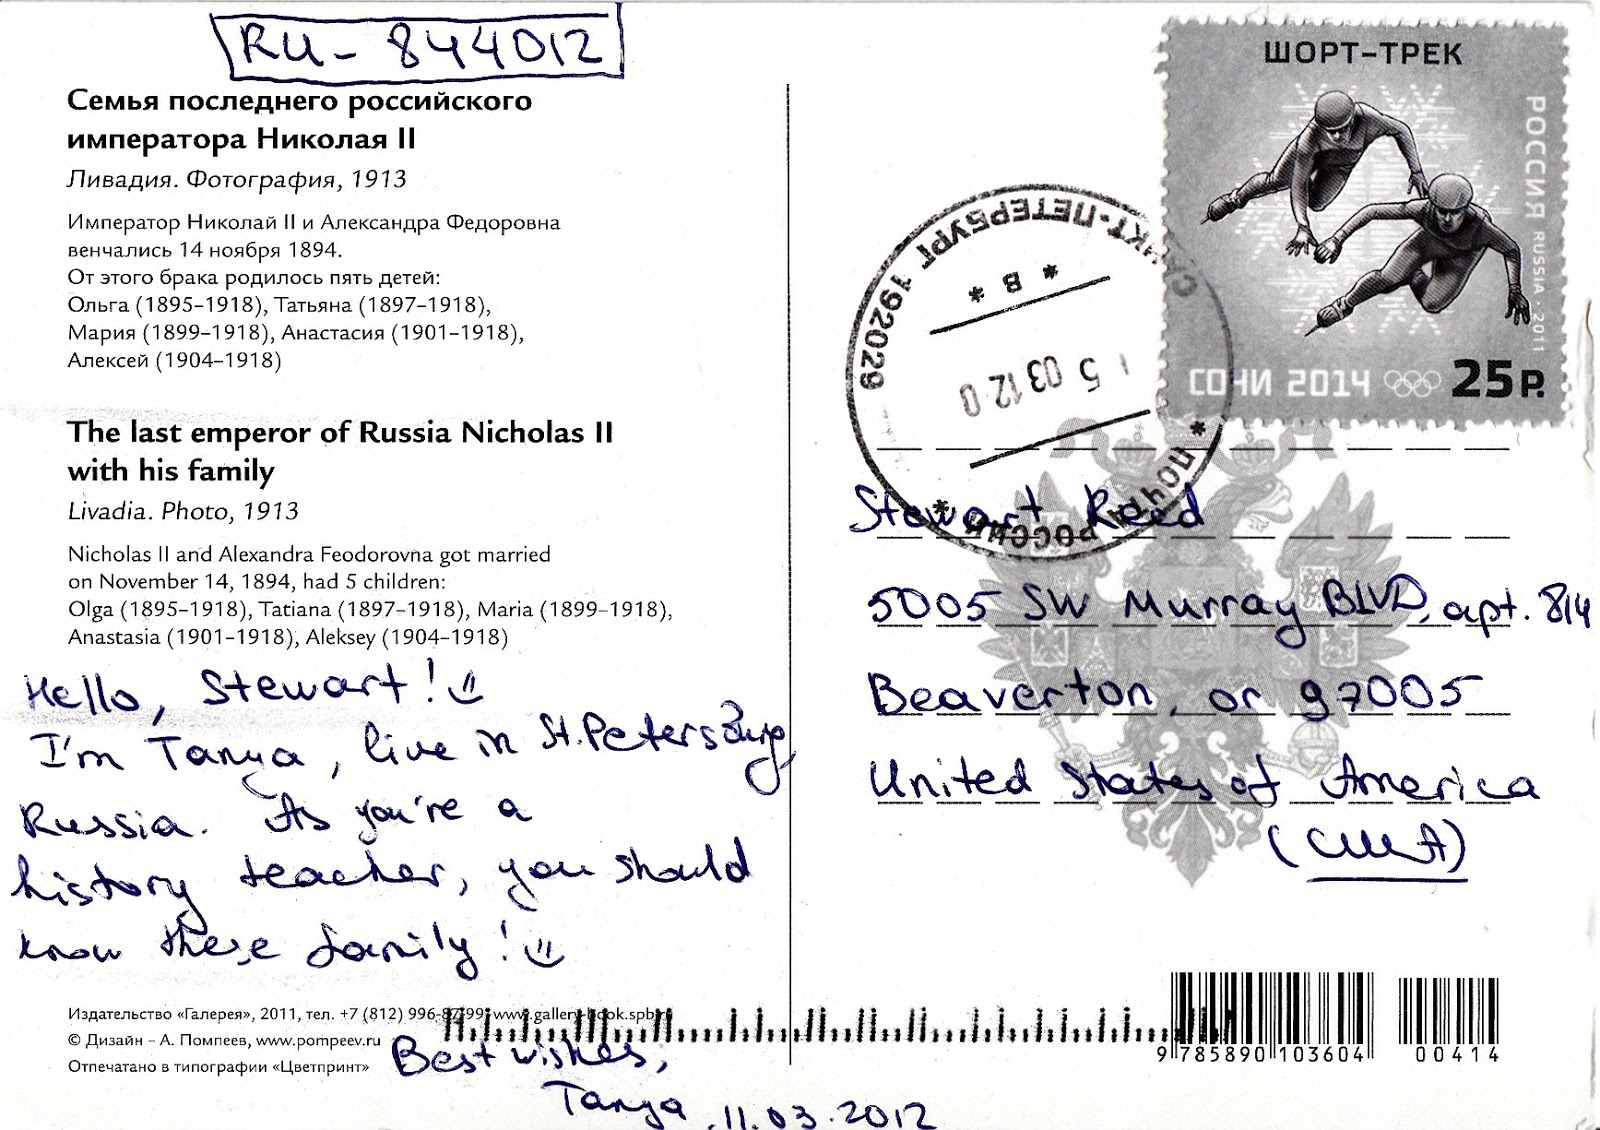 RU-844012
Семья последнего российского
императора Николая II
Ливадия. Фотография, 1913
Император Николай II и Александра Федоровна
венчались 14 ноября 1894.
От этого брака родилось пять детей:
Ольга (1895–1918), Татьяна (1897–1918),
Мария (1899–1918), Анастасия (1901–1918),
Алексей (1904–1918)
The last emperor of Russia Nicholas II
with his family
Livadia. Photo, 1913
Nicholas II and Alexandra Feodorovna got married
on November 14, 1894, had 5 children:
Olga (1895–1918), Tatiana (1897–1918), Maria (1899–1918),
Anastasia (1901–1918), Aleksey (1904–1918)
Hello, Stewart!
I'm Tanya, live in St.Petersburg,
Russia. As you're a
history teacher, you should
know these family!
Издательство «Галерея», 2011, тел. +7 (812) 996-87-99, www.gallery-book.spb.ru
© Дизайн – А. Помпеев, www.pompeev.ru
Отпечатано в типографии «Цветпринт»
Best wishes,
Tanya 11.03.2012
ШОРТ-ТРЕК
РОССИЯ RUSSIA · 2011
СОЧИ 2014 25Р.
САНКТ-ПЕТЕРБУРГ 192029
* В *
5 03 12 0
* ПОЧТА РОССИИ *
Stewart Reed
5005 SW Murray BLVD, apt. 814
Beaverton, or 97005
United States of America
(США)
9 785890 103604 00414